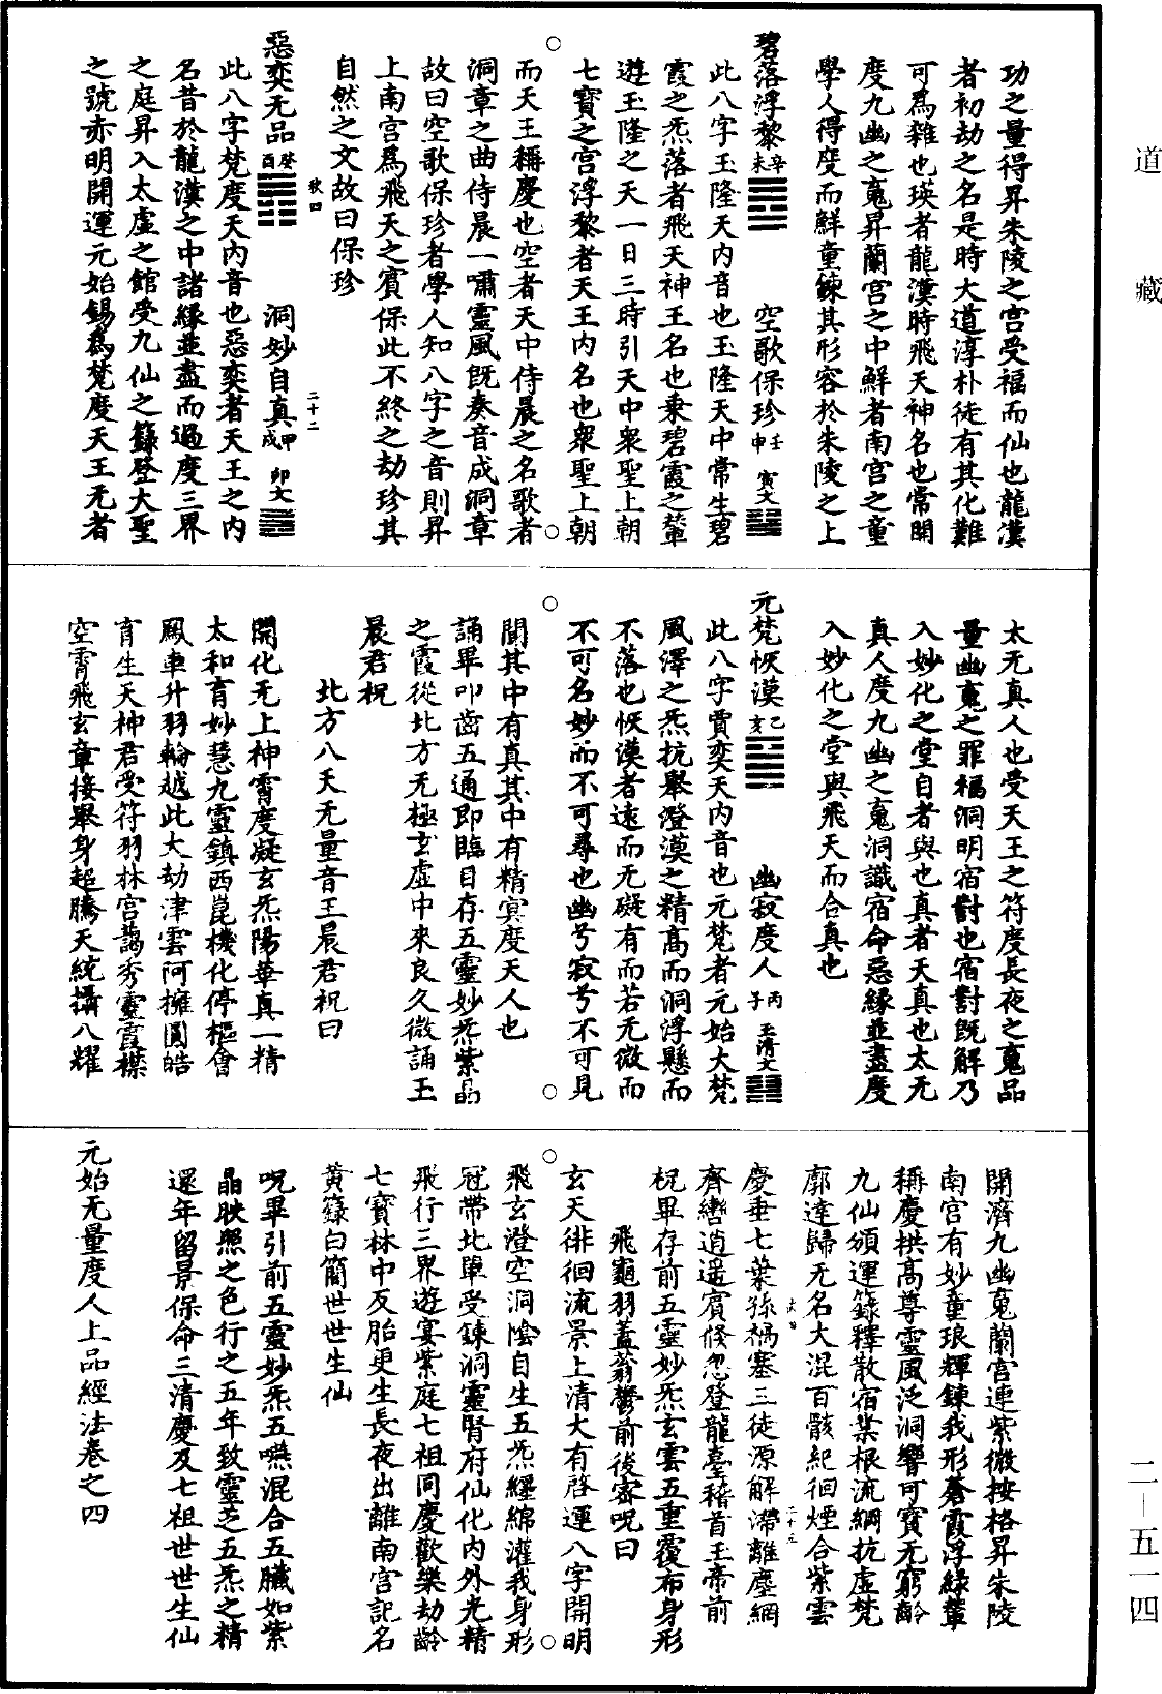 道藏
功之量得昇朱陵之宫受福而仙也龍漢
者初劫之名是時大道淳朴徒有其化難
可為雜也瑛者龍漢時飛天神名也常開
度九幽之䰟昇蘭宫之中鮮者南宫之童
學人得度而鮮童鍊其形容於朱陵之上
碧落浮黎辛未 空歌保珍壬申 寅文
此八字玉隆天内音也玉隆天中常生碧
霞之炁落者飛天神王名也乗碧霞之輦
遊玉隆之天一日三時引天中衆聖上朝
七寶之宫浮黎者天王内名也衆聖上朝
而天王稱慶也空者天中侍晨之名歌者
洞章之曲侍晨一嘯靈風既奏音成洞章
故曰空歌保珍者學人知八字之音則昇
上南宫為飛天之賓保此不終之劫珍其
自然之文故曰保珍
惡奕无品癸酉 洞妙自真甲戌 卯文
二十二
此八字梵度天内音也惡奕者天王之内
名昔於龍漢之中諸緣並盡而過度三界
之庭昇入太虚之館受九仙之籙登大聖
之號赤明開運元始錫為梵度天王无者
太无真人也受天王之符度長夜之䰟品
量幽䰟之罪福洞明宿對也宿對既解乃
入妙化之堂自者與也真者天真也太无
真人度九幽之䰟洞識宿命惡緣並盡度
入妙化之堂與飛天而合真也
元梵恢漠乙亥 幽寂度人丙子 玉清文
此八字賈奕天内音也元梵者元始大梵
風澤之炁抗舉澄漠之精髙而洞浮懸而
不落也恢漠者逺而无礙有而若无微而
不可名妙而不可尋也幽兮寂兮不可見
聞其中有真其中有精㝠度天人也
誦畢叩齒五通即臨目存五靈妙炁紫晶
之霞從北方无極玄虚中來良久微誦王
晨君祝
北方八天无量音王晨君祝曰
開化无上神霄度凝玄炁陽華真一精
太和育妙慧九靈鎮西崑機化停樞會
鳳車升羽輪越此大劫津雲阿擁圓皓
育生天神君受符羽林宫藹秀靈霞襟
空霄飛玄章接舉身超騰天統攝八耀
開濟九幽䰟蘭宫連紫微按格昇朱陵
南宫有妙童琅輝鍊我形蒼霞浮緑輦
稱慶拱髙尊靈風泛洞響可寳无窮齡
九仙頒運籙釋散宿業根流綱抗虚梵
廓達歸无名大混百骸紀徊煙合紫雲
慶垂七葉孫禍塞三徒源解滯離塵網
二十三
齊轡逍遥賓倏忽登龍臺稽首玉帝前
祝畢存前五靈妙炁玄雲五重覆布身形
飛龜羽蓋蓊鬱前後密呪曰
玄天徘徊流景上清大有啓運八字開明
飛玄澄空洞陰自生五炁纏綿灌我身形
冠帶北單受鍊洞靈腎府仙化内外光精
飛行三界遊宴紫庭七祖同慶歡樂劫齡
七寳林中反胎更生長夜出離南宫記名
黄籙白簡世世生仙
呪畢引前五靈妙炁五嚥混合五臟如紫
晶映照之色行之五年致靈芝五炁之精
還年留景保命三清慶及七祖世世生仙
元始无量度人上品經法卷之四
二—五一四